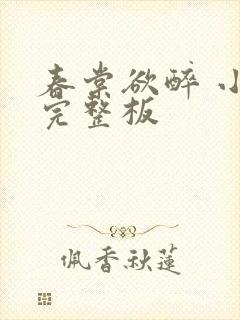 春棠欲醉 小
完整板
佩香秋莲